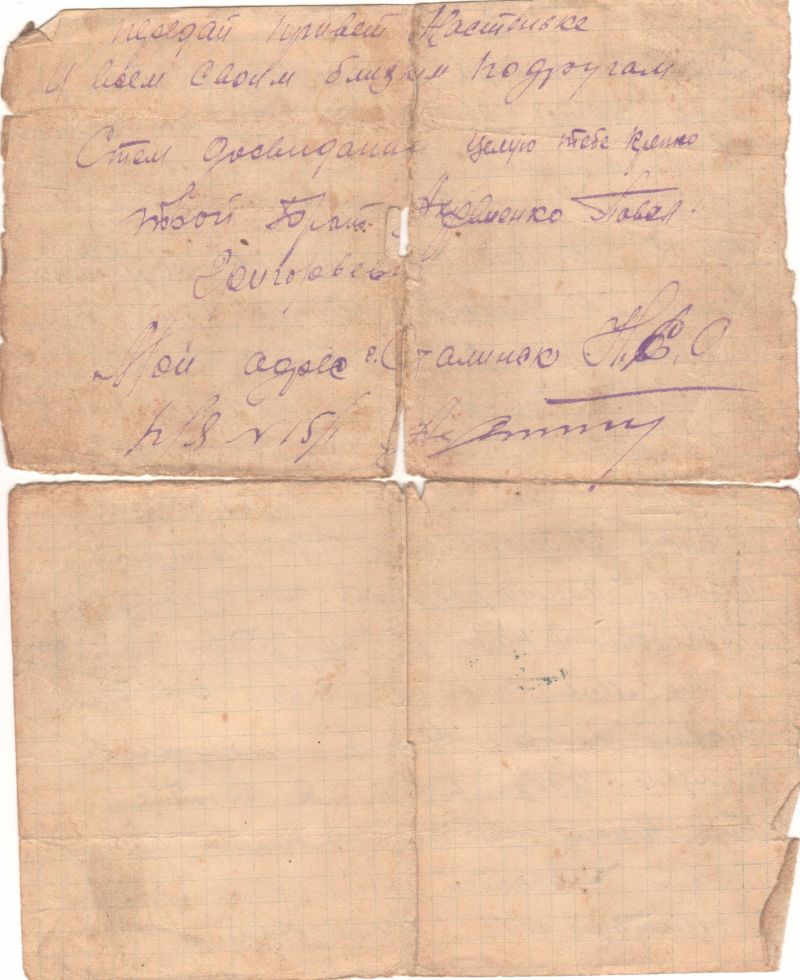 передай привет Настеньке
И всем своим близким подругам
Стем досвидание целую тебе крепко
твой брат Павел
Григорьеви
Мой адрес г. Сталинск
п/я № 15/